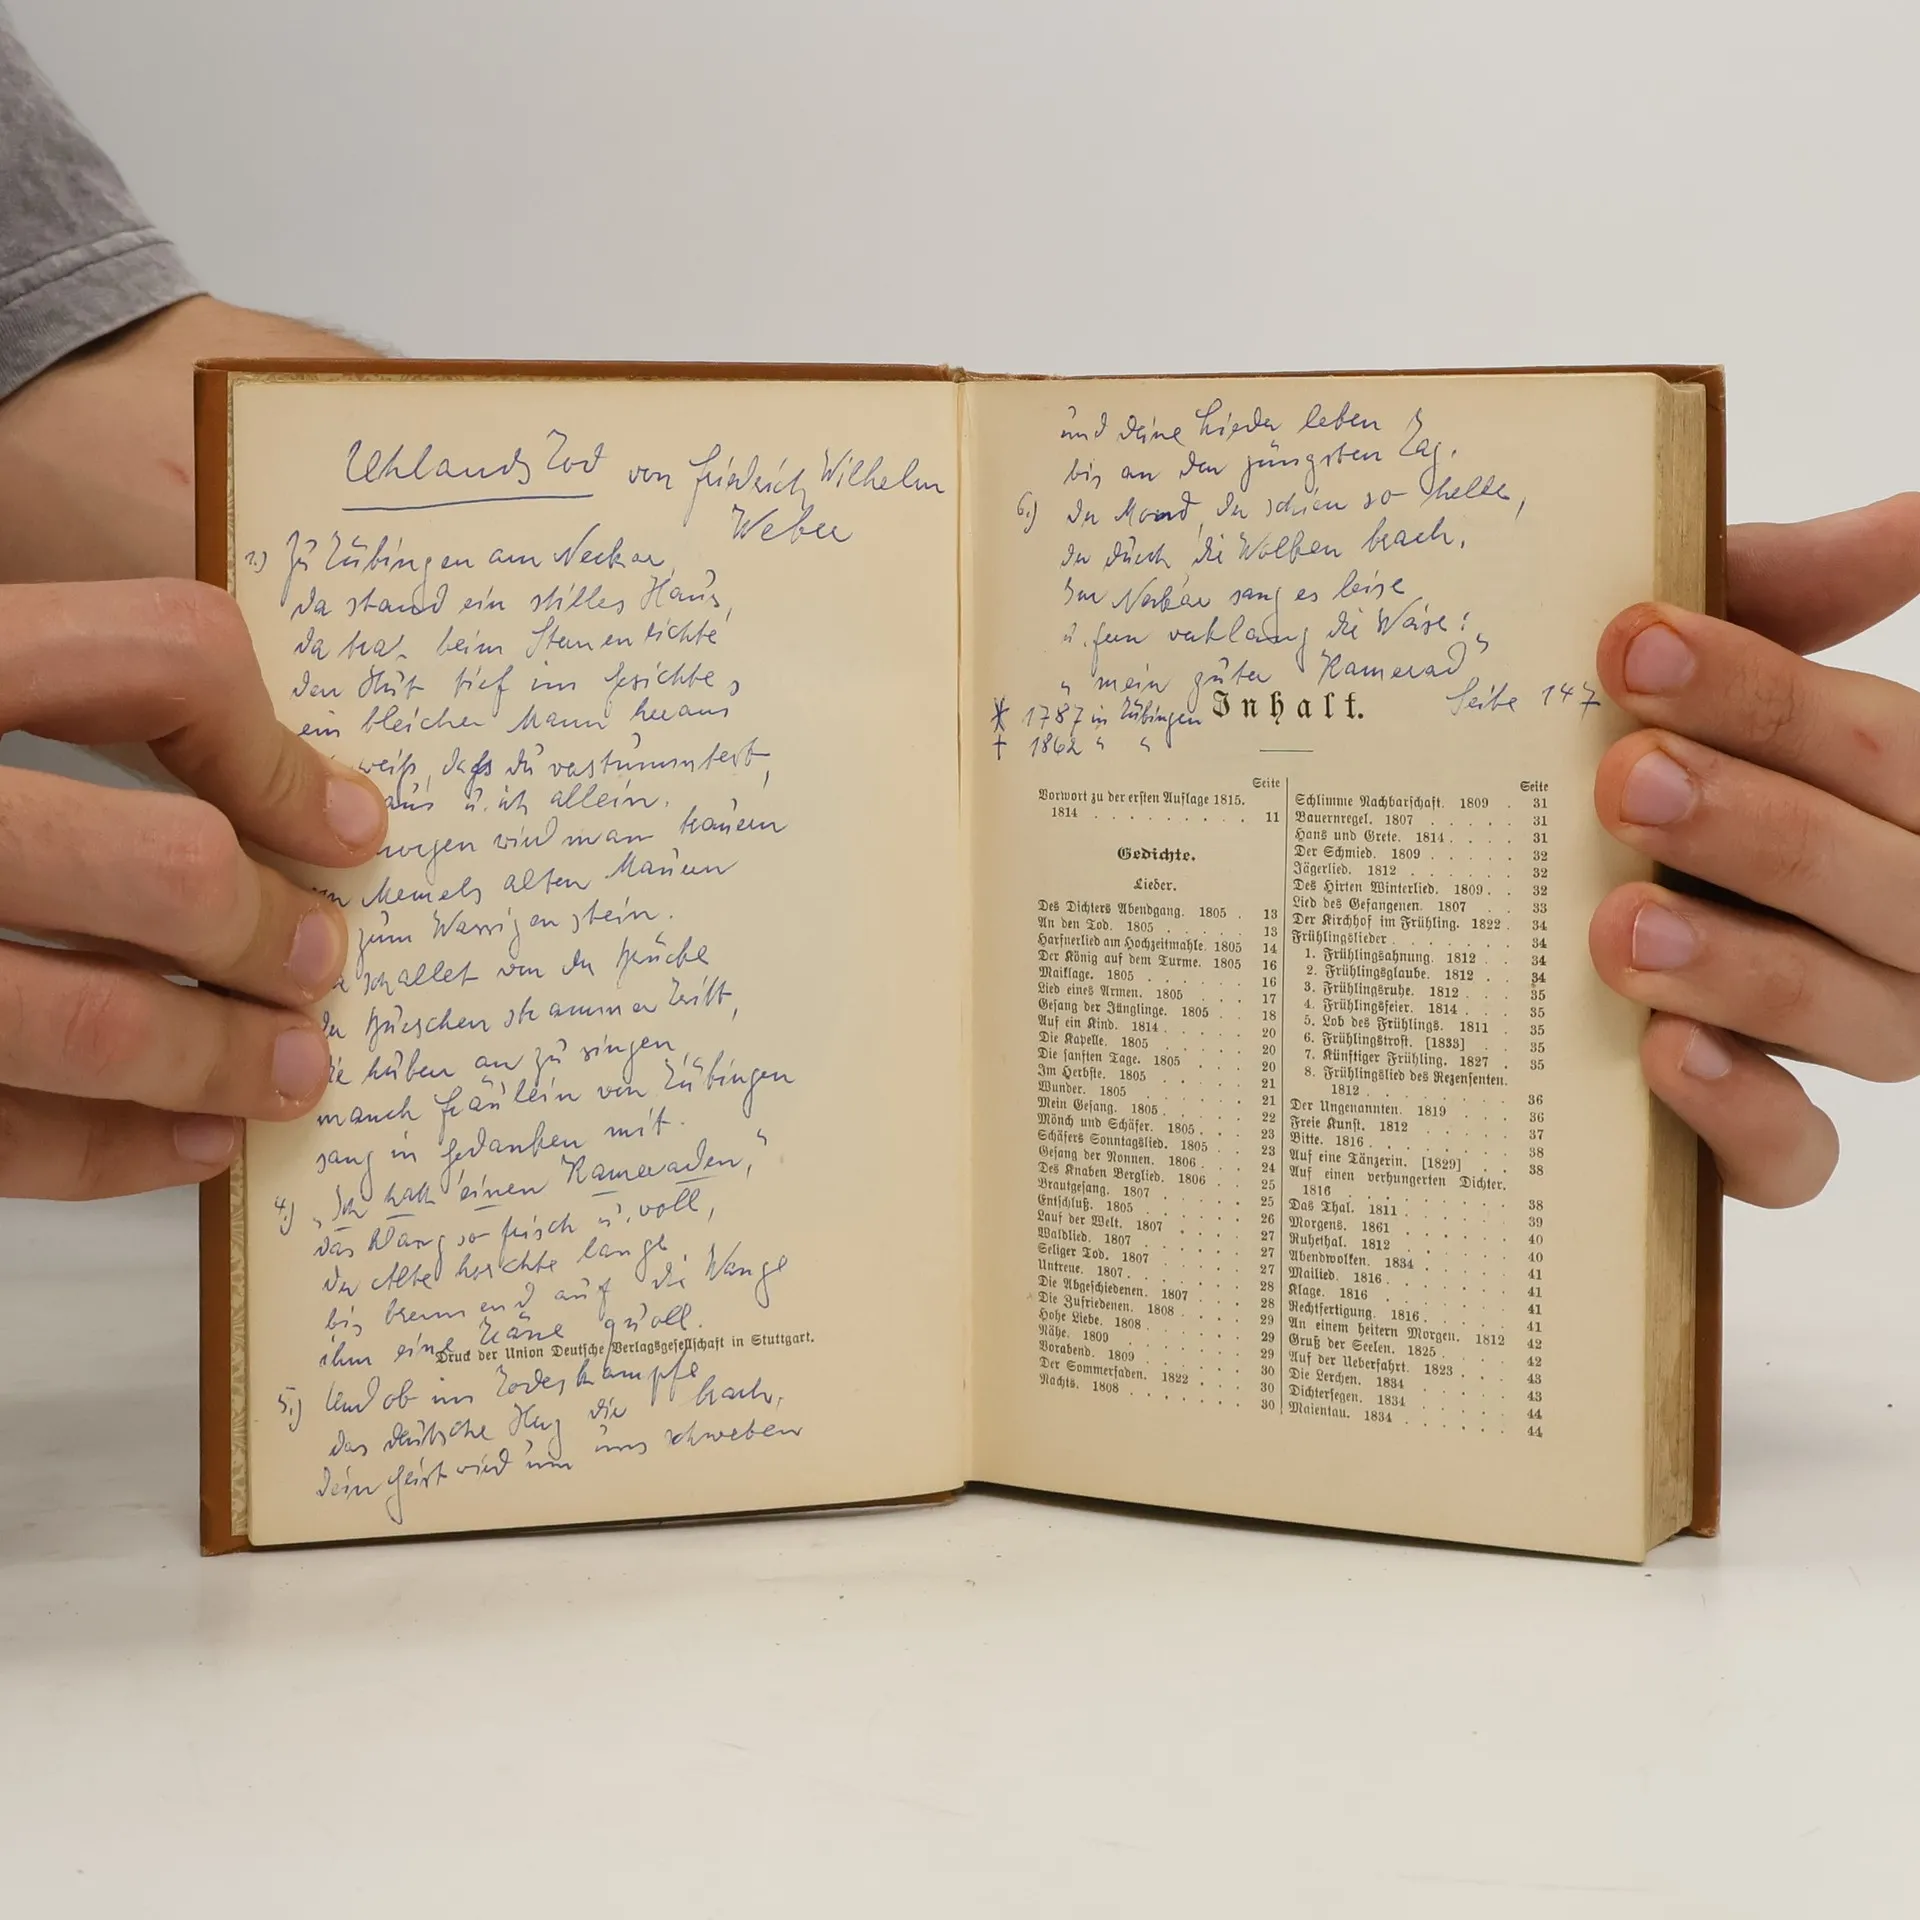 Uhlands Tod von Friedrich Wilhelm
Weber
1.) Zu Tübingen am Neckar
da stand ein stilles Haus,
da trat beim Sternenlichte
den Hut tief im Gesichte,
ein bleicher Mann heraus
weiß, dass du verstummtest,
aus u. ich allein.
morgen wird man trauern
Memels alten Mauern
zum Wasgenstein.
schallet von der Brücke
der Burschen strammer Tritt,
sie huben an zu singen
manch Fräulein von Tübingen
sang in Gedanken mit.
4.) „Ich hatt einen Kameraden,"
das klang so frisch u. voll,
der Alte horchte lange
bis brennend auf die Wange
ihm eine Träne quoll.
Druck der Union Deutsche Verlagsgesellschaft in Stuttgart.
5.) Und ob im Todeskampfe
das deutsche Herz dir brach,
dein Geist wird um uns schweben
und deine Lieder leben
bis an den jüngsten Tag.
6.) der Mond, der schien so helle,
der durch die Wolken brach,
Im Neckar sang es leise
u. fern verklang die Weise:
„mein guter Kamerad"
Seite 147
* 1787 in Tübingen
† 1862 " "
Inhalt.
Seite
Vorwort zu der ersten Auflage 1815.
1814 . . . . . . . . . 11
Gedichte.
Lieder.
Des Dichters Abendgang. 1805 . 13
An den Tod. 1805 . . . . . 13
Harfnerlied am Hochzeitmahle. 1805 14
Der König auf dem Turme. 1805 16
Maiklage. 1805 . . . . . 16
Lied eines Armen. 1805 . . . 17
Gesang der Jünglinge. 1805 . . 18
Auf ein Kind. 1814 . . . . 20
Die Kapelle. 1805 . . . . 20
Die sanften Tage. 1805 . . . 20
Im Herbste. 1805 . . . . 21
Wunder. 1805 . . . . . 21
Mein Gesang. 1805 . . . . 22
Mönch und Schäfer. 1805 . . . 23
Schäfers Sonntagslied. 1805 . . 23
Gesang der Nonnen. 1806 . . . 24
Des Knaben Berglied. 1806 . . 25
Brautgesang. 1807 . . . . 25
Entschluß. 1805 . . . . . 26
Lauf der Welt. 1807 . . . . 27
Waldlied. 1807 . . . . . 27
Seliger Tod. 1807 . . . . 27
Untreue. 1807 . . . . . 28
Die Abgeschiedenen. 1807 . . . 28
Die Zufriedenen. 1808 . . . 29
Hohe Liebe. 1808 . . . . 29
Nähe. 1809 . . . . . 29
Vorabend. 1809 . . . . . 30
Der Sommerfaden. 1822 . . . 30
Nachts. 1808 . . . . . 30
Seite
Schlimme Nachbarschaft. 1809 . 31
Bauernregel. 1807 . . . . . 31
Hans und Grete. 1814 . . . . 31
Der Schmied. 1809 . . . . . 32
Jägerlied. 1812 . . . . . 32
Des Hirten Winterlied. 1809 . . 32
Lied des Gefangenen. 1807 . . 33
Der Kirchhof im Frühling. 1822 . 34
Frühlingslieder . . . . . . 34
1. Frühlingsahnung. 1812 . . 34
2. Frühlingsglaube. 1812 . . 34
3. Frühlingsruhe. 1812 . . . 35
4. Frühlingsfeier. 1814 . . . 35
5. Lob des Frühlings. 1811 . . 35
6. Frühlingstrost. [1833] . . 35
7. Künftiger Frühling. 1827 . . 35
8. Frühlingslied des Rezensenten.
1812 . . . . . . . 36
Der Ungenannten. 1819 . . . 36
Freie Kunst. 1812 . . . . . 37
Bitte. 1816 . . . . . . 38
Auf eine Tänzerin. [1829] . . 38
Auf einen verhungerten Dichter.
1816 . . . . . . . . 38
Das Thal. 1811 . . . . . 39
Morgens. 1861 . . . . . 40
Ruhethal. 1812 . . . . . 40
Abendwolken. 1834 . . . . 41
Mailied. 1816 . . . . . 41
Klage. 1816 . . . . . . 41
Rechtfertigung. 1816 . . . . 42
An einem heitern Morgen. 1812 42
Gruß der Seelen. 1825 . . . 42
Auf der Ueberfahrt. 1823 . . . 43
Die Lerchen. 1834 . . . . 43
Dichtersegen. 1834 . . . . 44
Maientau. 1834 . . . . . 44